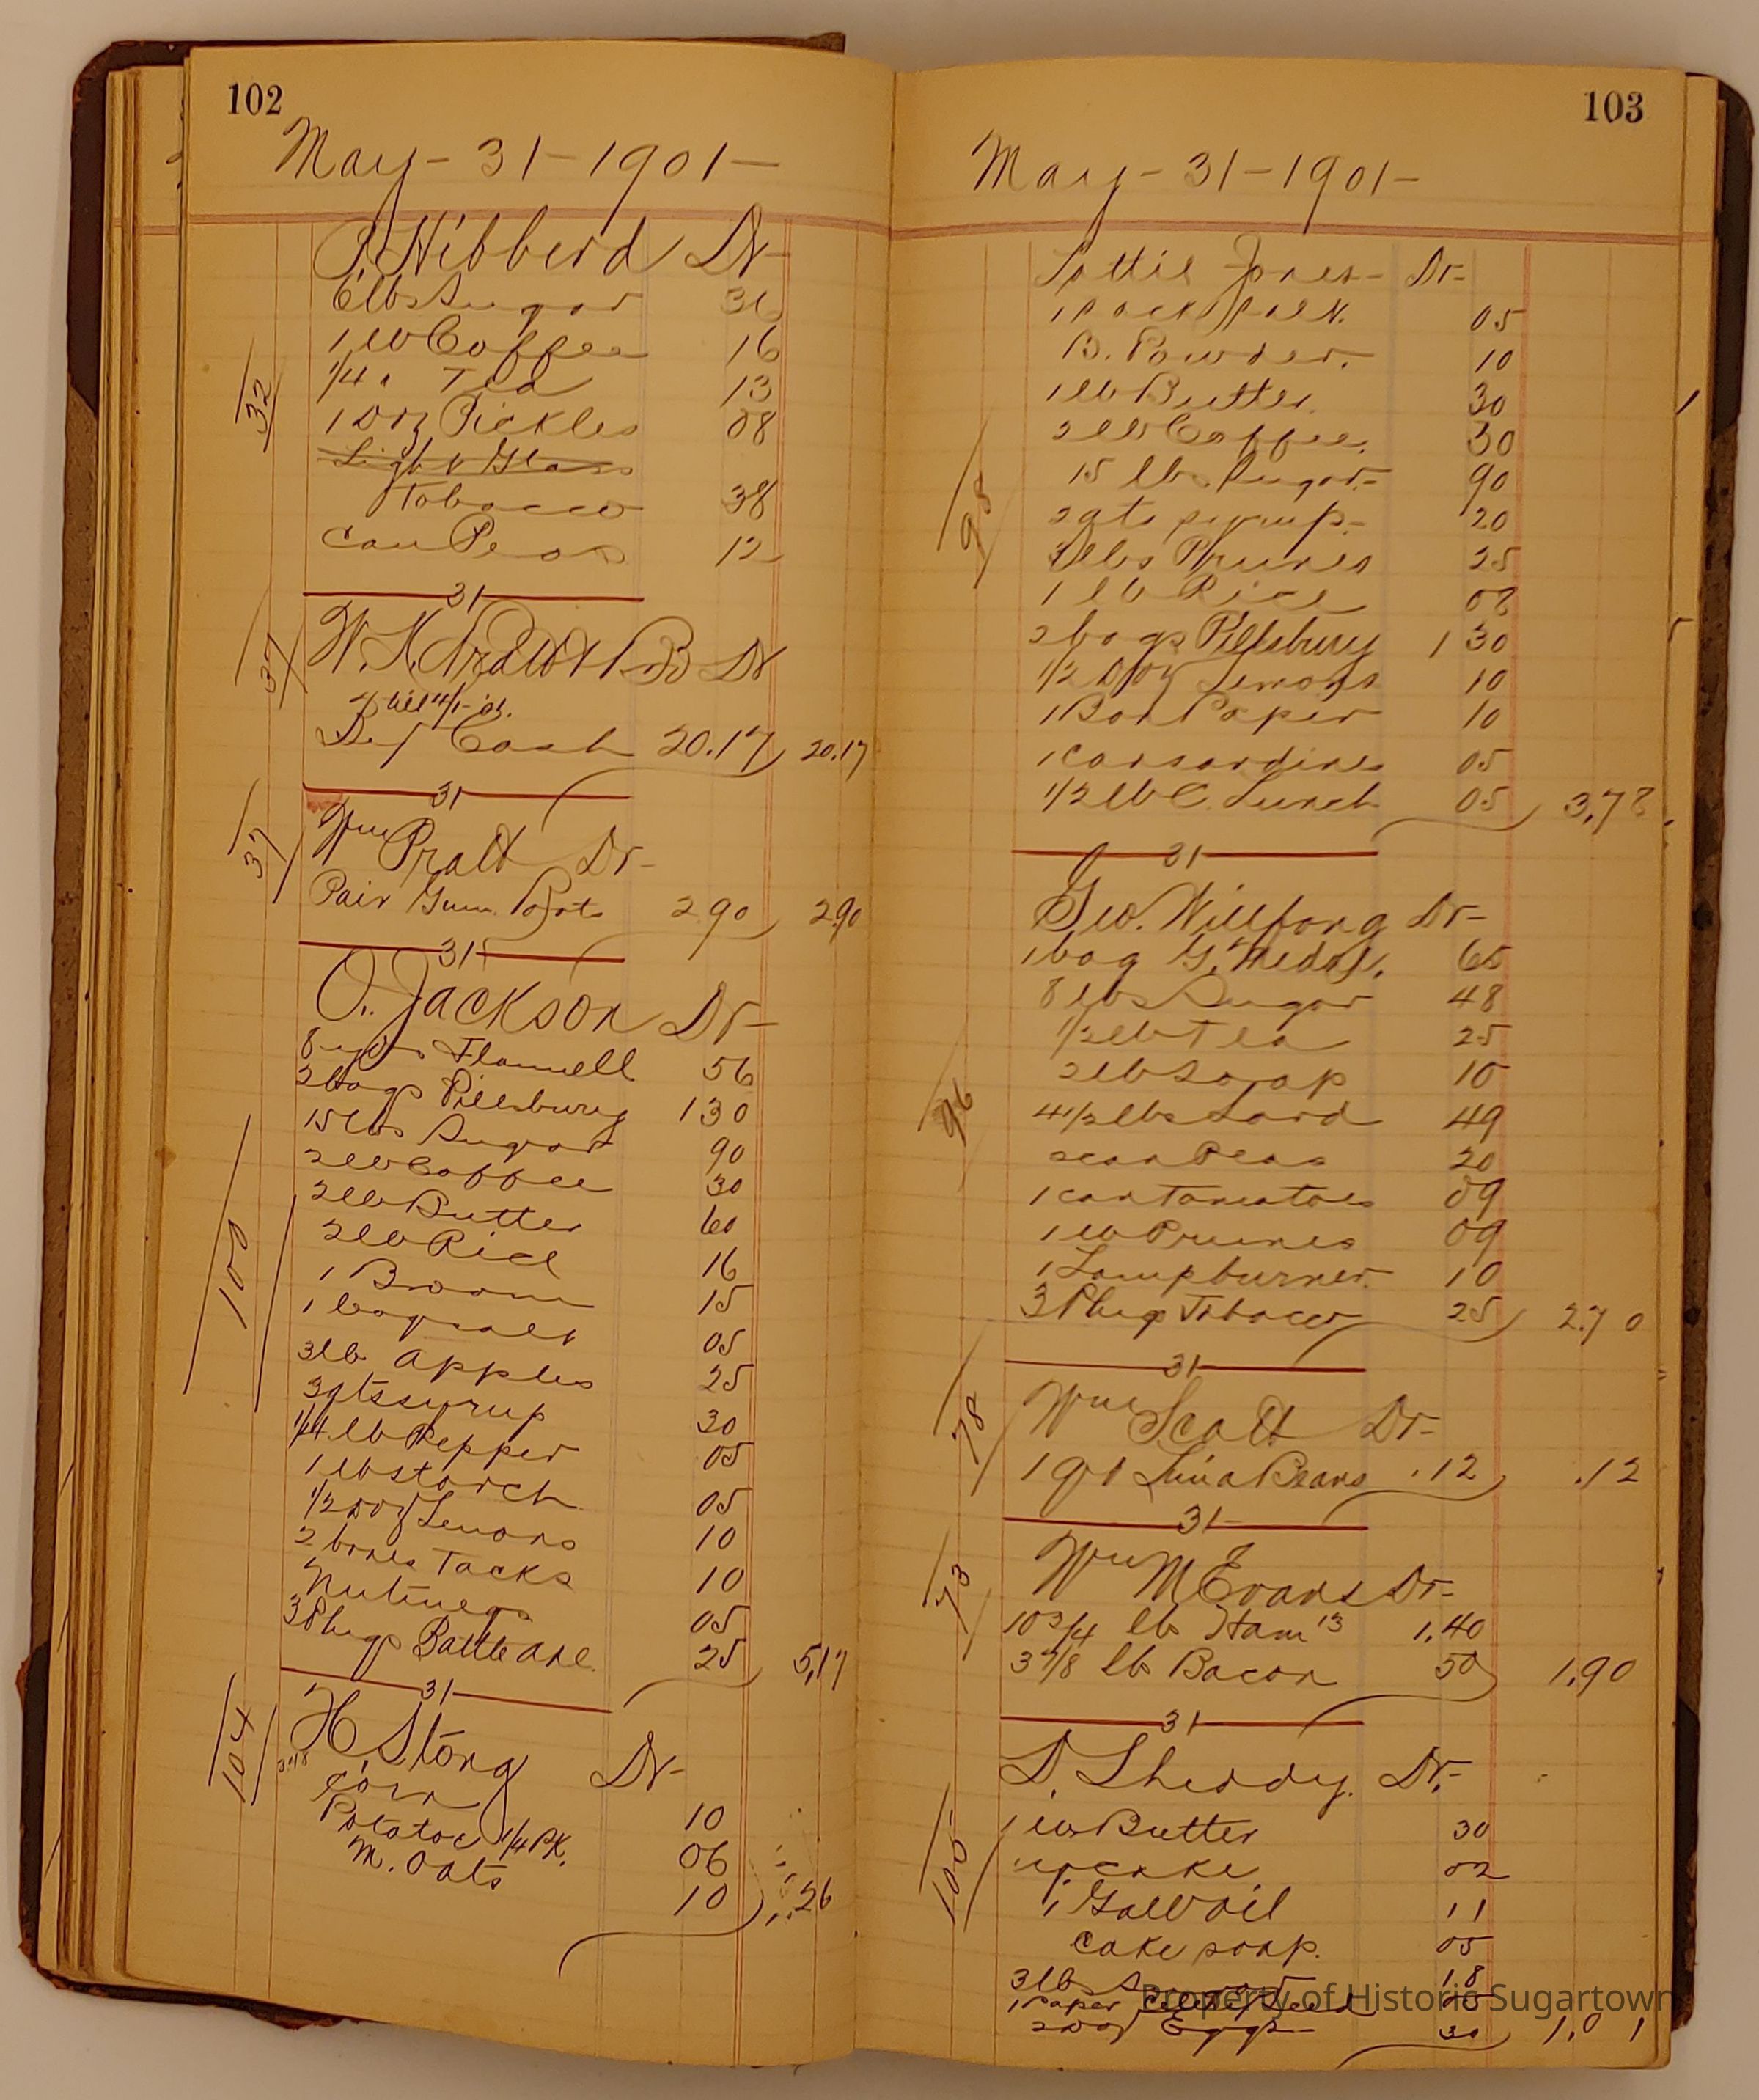 102
May - 31 - 1901 -
Hibberd Dr -
6 lbs Sugar 36
1 lb Coffee 16
1/4 " Tea 13
1 Doz Pickles 08
Light Glass
Tobacco 38
Can Peas 12
32
31
W. Dr
37
Cash 20.17 20.17
31
37
Wm Pratt Dr -
Pair Gum Boots 2 90 2.90
31
O. Jackson Dr -
8 yds Flannell 56
2 bags Pillsbury 1 30
15 lbs Sugar 90
2 lb Coffee 30
2 lb Butter 60
2 lb Rice 16
1 Broom 15
1 bag salt 05
3 lb apples 25
3 qts syrup 30
1/4 lb Pepper 05
1 lb starch 05
1/2 Doz Lemons 10
2 boxes Tacks 10
Nutmegs 05
3 Plugs Battle axe 25 5.17
100
31
104
H. Stong Dr -
Corn 10
Potatoe 1/4 PK. 06
M. Oats 10 .26
103
May - 31 - 1901 -
Lottie Jones - Dr -
1 Sack Salt. 05
B. Powder. 10
1 lb Butter 30
2 lb Coffee. 30
15 lbs Sugar - 90
2 qts syrup - 20
3 lbs Prunes 25
1 lb Rice 08
2 bags Pillsbury 1 30
1/2 Doz Lemons 10
1 Box Paper 10
1 can sardines 05
1/2 lb C. Lunch 05 3.78
98
31
Geo. Willfong Dr -
1 bag G. Medal. 65
8 lbs Sugar 48
1/2 lb Tea 25
2 lb Soap 10
4 1/2 lbs Lard 49
2 can Peas 20
1 can Tomatoes 09
1 lb Prunes 09
1 Lampburner. 10
3 Plugs Tobacco 25 2.70
96
31
78
Wm Scott Dr -
1 qt Lima Beans .12 .12
31
73
Wm M Evans Dr -
10 3/4 lb Ham 13 1.40
3 7/8 lb Bacon 50 1.90
31
Dr. -
1 lb Butter 30
yt cake 02
1 Gall Oil 11
Cake soap. 05
3 lb Sugar 18
1 Paper Seed 05
2 Doz Eggs - 30 1.01
105
Property of Historic Sugartown